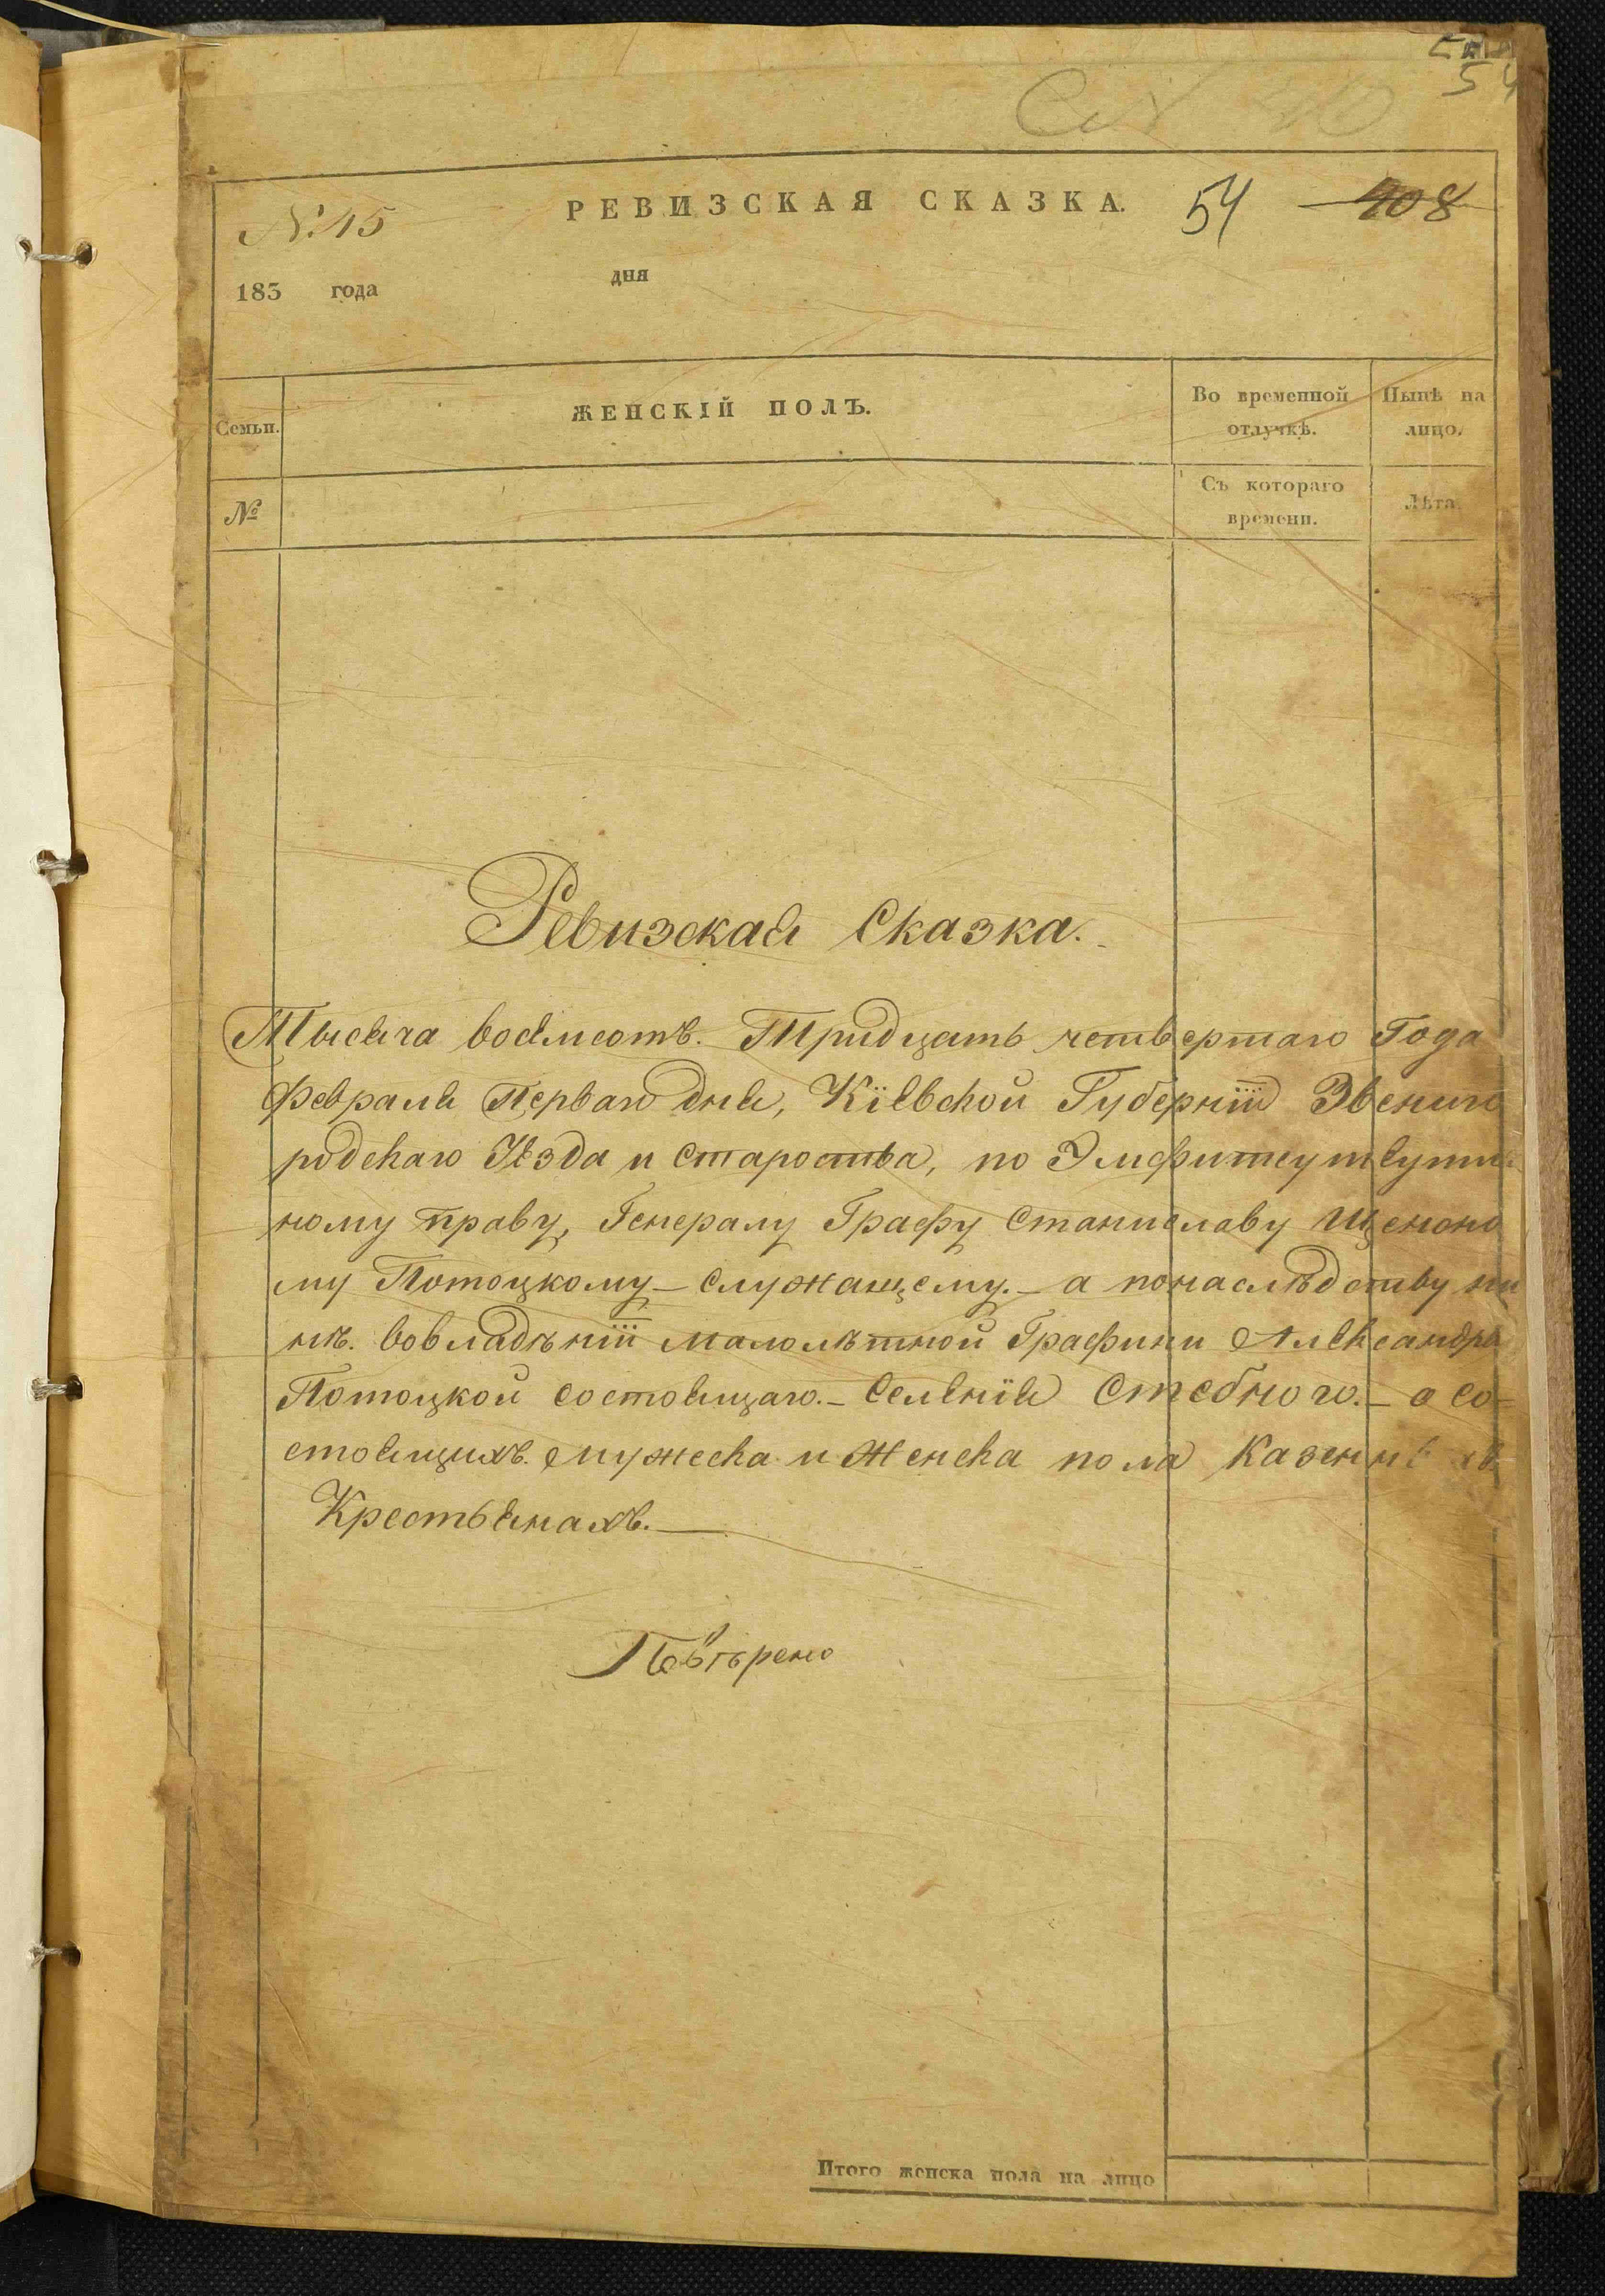 54
№ 15
РЕВИЗСКАЯ СКАЗКА.
54
408
183 года
дня
Семьи.
ЖЕНСКІЙ ПОЛЪ.
Во временной отлучкѣ.
Нынѣ на лицо.
№
Съ котораго времени.
Лѣта
Ревизская Сказка.
Тысяча восемсотъ. Тридцать четвертаго Года
Февраля Перваго дня, Кіевской Губерніи Звениго
родскаго Уѣзда и Староства, по
ному праву, Генералу Графу Станиславу Щенсно
му Потоцкому – Служащему. – а понаслѣдству ны
нѣ. вовладѣніи малолѣтной Графини Александры
Потоцкой состоящаго. – Селенія Стебного. – о со-
стоящихъ. мужеска и Женска пола Казенныхъ
Крестьянахъ. —
Повѣрено
Итого женска пола на лицо